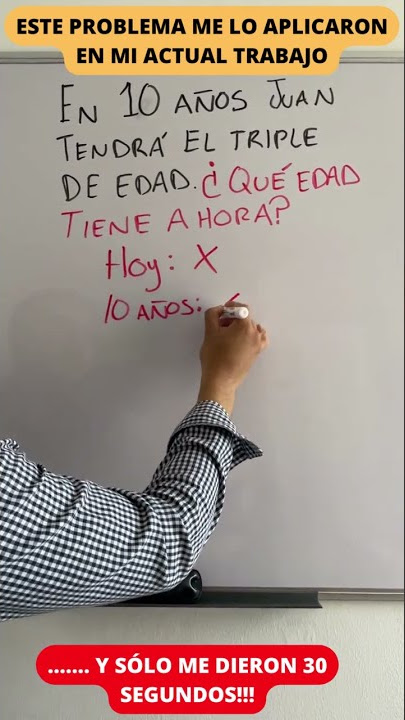 ESTE PROBLEMA ME LO APLICARON
EN MI ACTUAL TRABAJO
EN 10 AÑOS JUAN
TENDRÁ EL TRIPLE
DE EDAD. ¿QUÉ EDAD
TIENE AHORA?
Hoy: X
10 AÑOS:
....... Y SÓLO ME DIERON 30
SEGUNDOS!!!